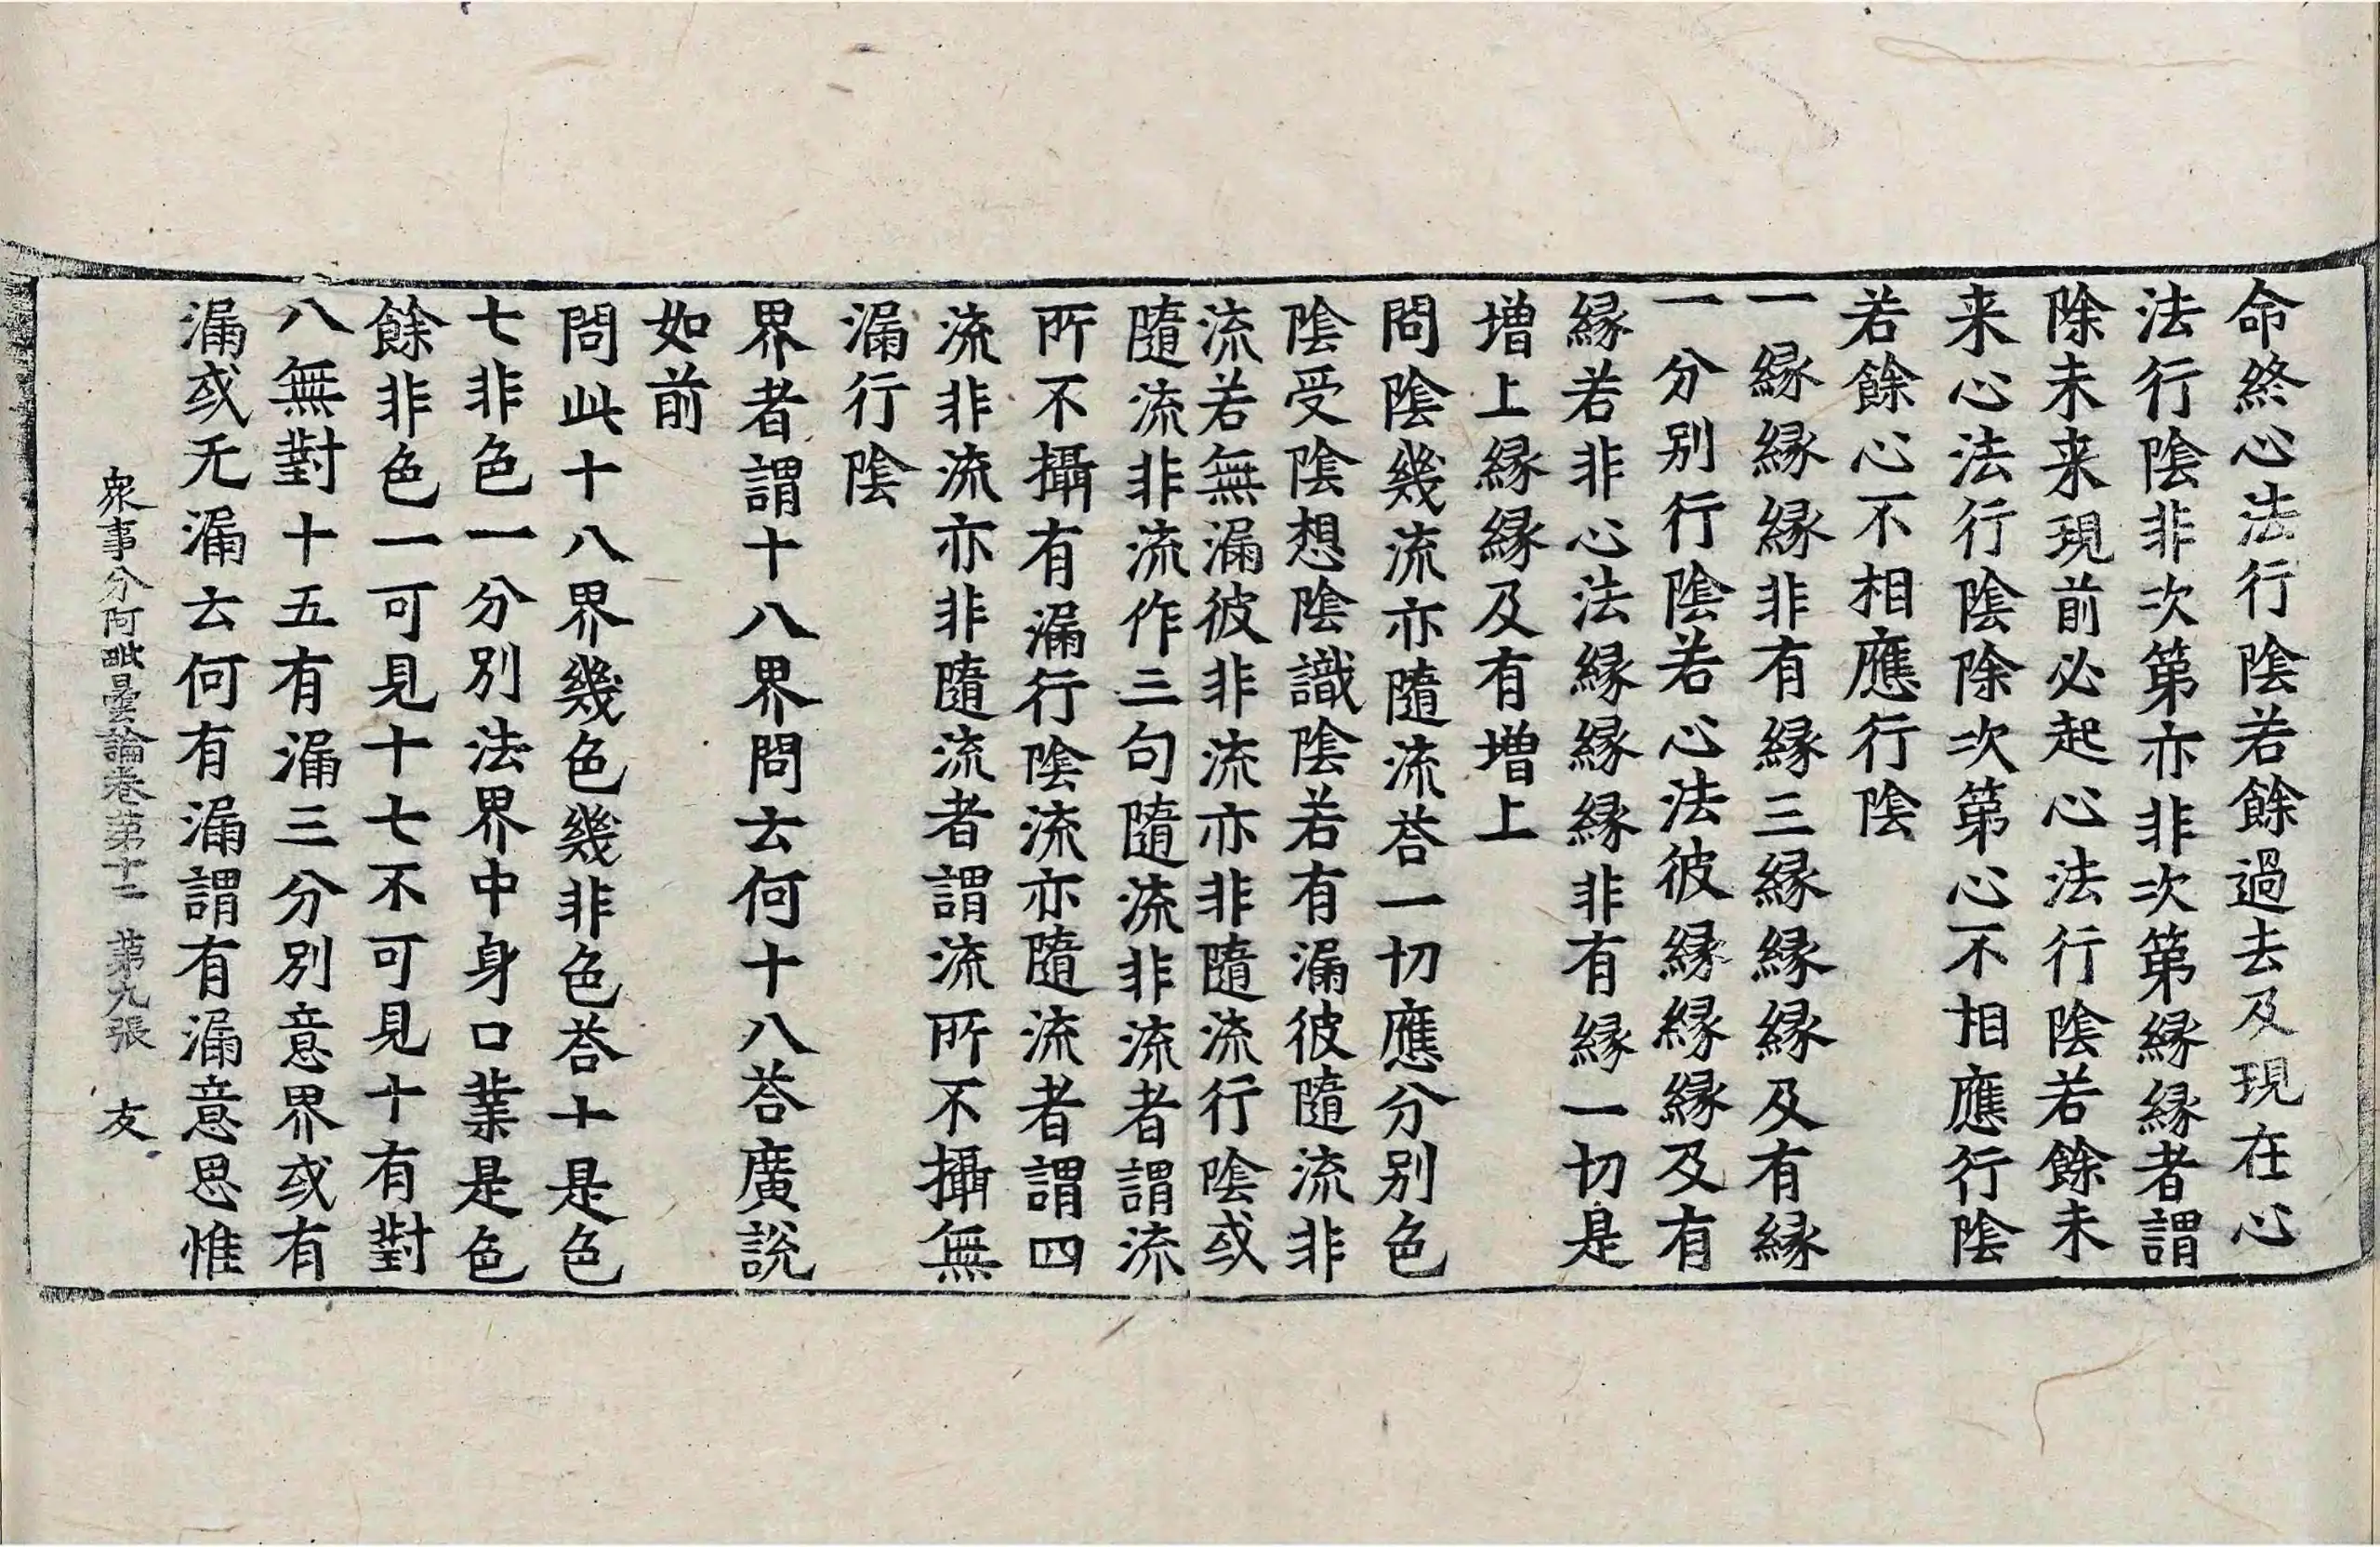 命終心法行陰若餘過去及現在心
法行陰非次第亦非次第縁縁者謂
除未来現前必起心法行陰若餘未
来心法行陰除次第心不相應行陰
若餘心不相應行陰
一縁縁縁非有縁三縁縁縁及有縁
一分別行陰若心法彼縁縁縁及有
縁若非心法縁縁縁非有縁一切是
増上縁縁及有増上
問陰幾流亦隨流荅一切應分別色
陰受陰想陰識陰若有漏彼隨流非
流若無漏彼非流亦非隨流行陰或
隨流非流作三句隨流非流者謂流
所不攝有漏行陰流亦隨流者謂四
流非流亦非隨流者謂流所不攝無
漏行陰
界者謂十八界問云何十八荅廣說
如前
問此十八界幾色幾非色荅十是色
七非色一分別法界中身口業是色
餘非色一可見十七不可見十有對
八無對十五有漏三分別意界或有
漏或无漏云何有漏謂有漏意思惟
衆事分阿毗曇論卷第十二 第九張 友